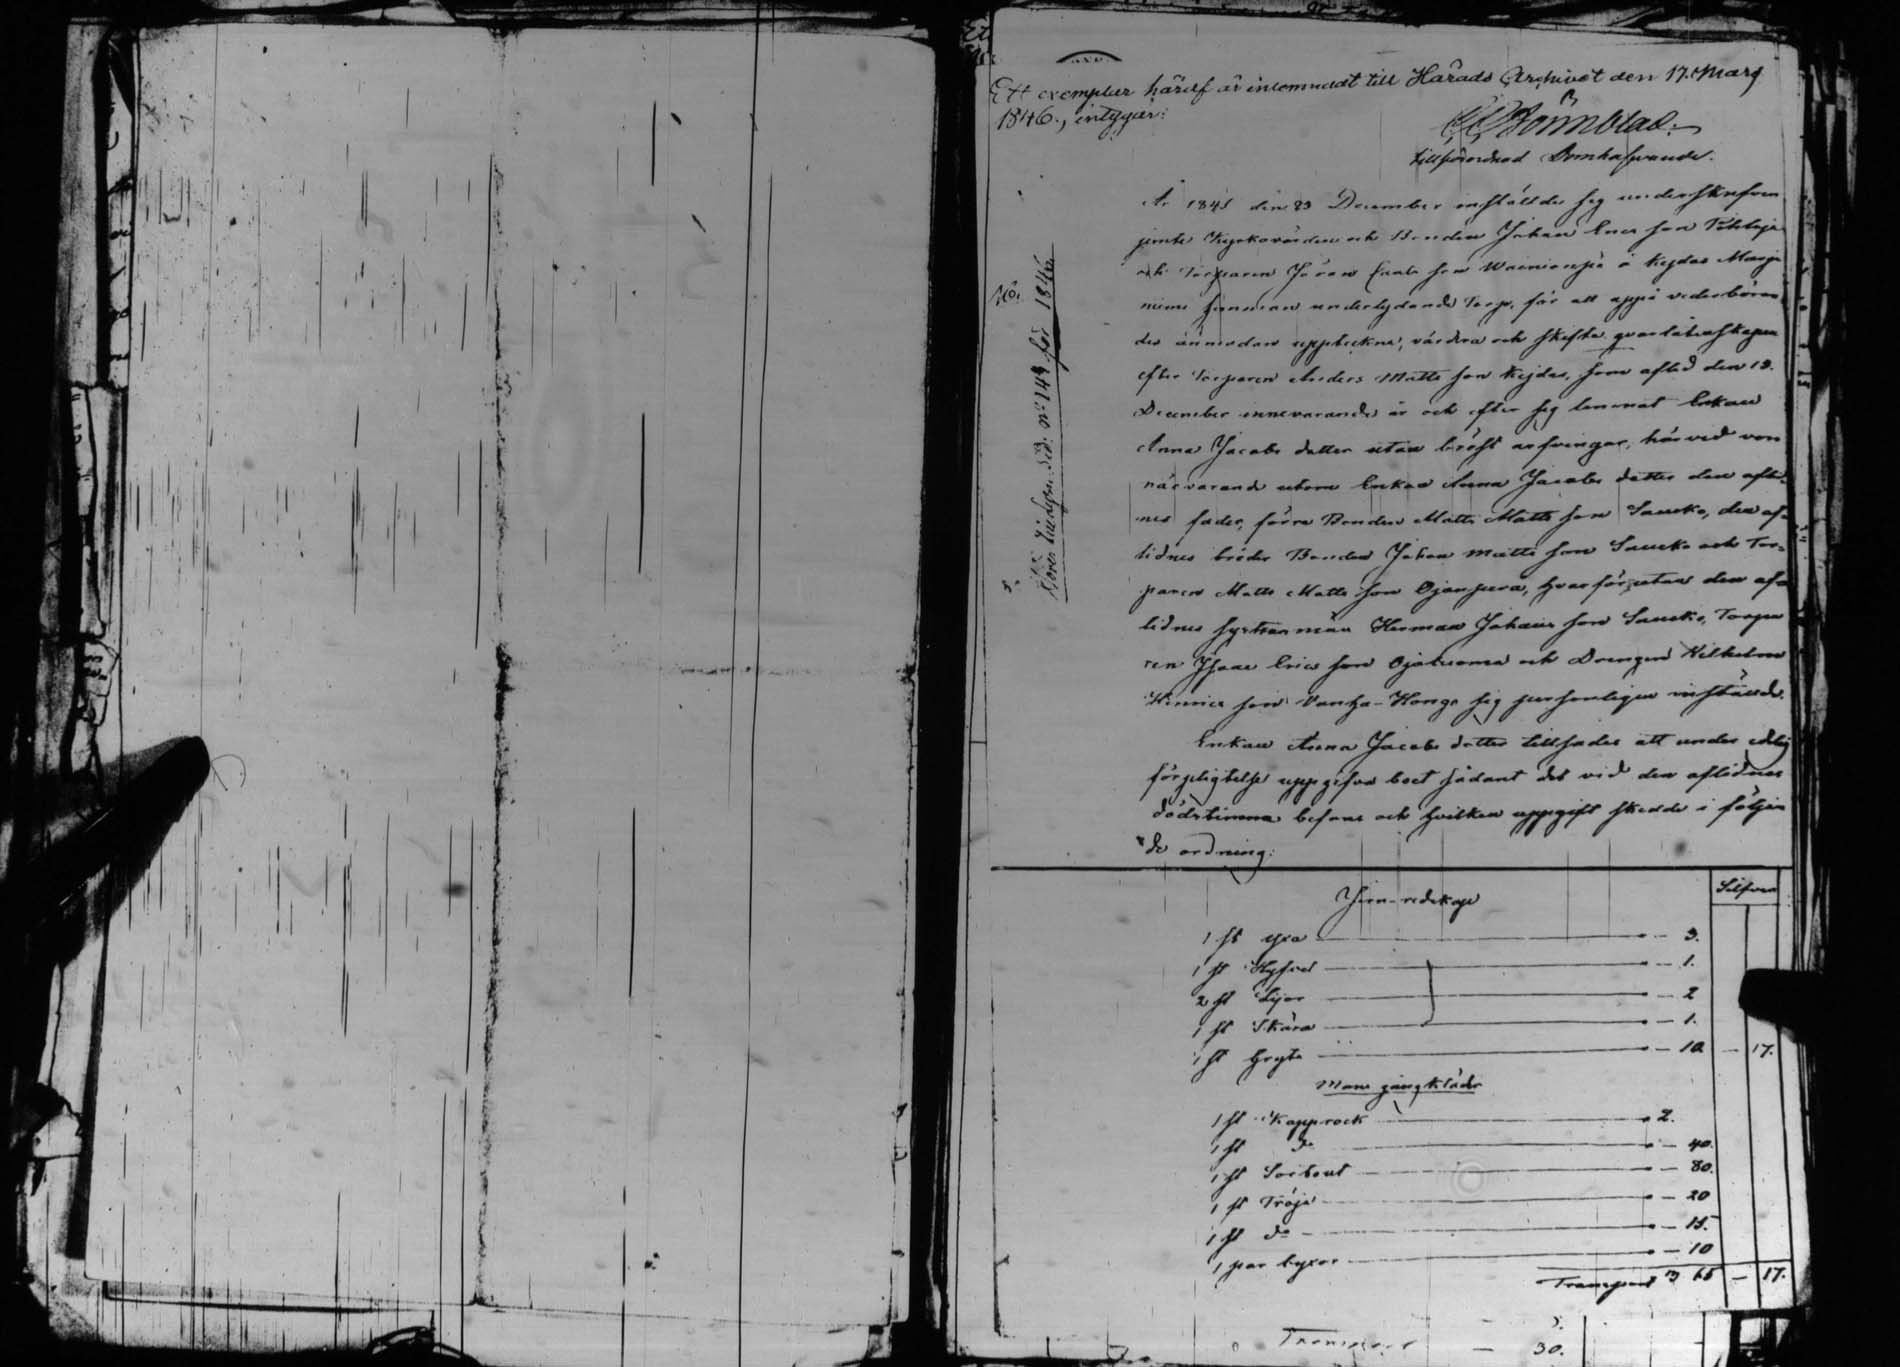 Ett exemplar häraf är inlemnadt till Härads Archivet den 17. Mars
1846., intygar:
tillförordnad Domhafvande.
År 1845 den 23 December inställde sig underskrifven
jemte Kyrkovärden och Bonden Johan Erics son
och Torparen Jöran son Wainionpä å Kejdas
hemman underlydande Torp, för att uppå vederböran
des anmodan uppteckna, värdera och skifta qvarlåtenskapen
efter Torparen Anders Matts son Kejdas, som afled den 13.
December innevarande år och efter sig lemnat Enkan
Anna Jacobs dotter utan bröst arfvingar, härvid voro
närvarande utom Enkan Anna Jacobs dotter den aflid-
nes fader, förra Bonden Matts Matts son Saucko, den af-
lidnes bröder Bonden Johan Matts son Saucko och Tor-
paren Matts Matts son Ojanperä, hvarförutan den af-
lidnes systermän Herman Johans son Saucko, Torpa
ren Isaac Erics son Ojaluoma och Drengen Wilhelm
Henrics son Vanha-Honga sig personligen inställde.
Enkan Anna Jacobs dotter tillsades att under edelig
förpligtelse uppgifva boet sådant det vid den aflidnes
dödstimma befans och hvilken uppgift skedde i följan
de ordning:
No. 149 för 1846.
Silfver
Jern-redskap
1 st yxa — 3.
1 st Hyfvel — 1.
2 st Lijor — 2
1 st Skära — 1.
1 st Gryta — 10 — 17.
Mans gångkläder
1 st Kapprock 2.
1 st do — 40.
1 st Sortout — 80.
1 st Tröja — 20
1 st do — 15.
1 par byxor — 10
Transport 3 65 — 17.
Transport — 30.